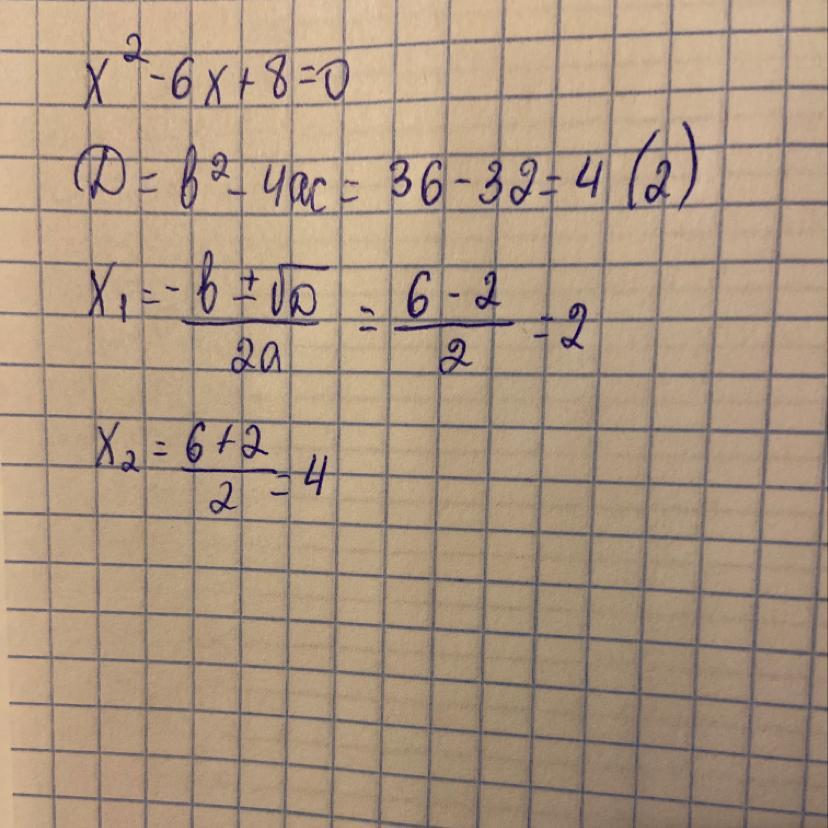 x² - 6x + 8 = 0
D = b² - 4ac = 36 - 32 = 4 (2)
x₁ = (-b ± √D)/(2a) = (6 - 2)/2 = 2
x₂ = (6 + 2)/2 = 4